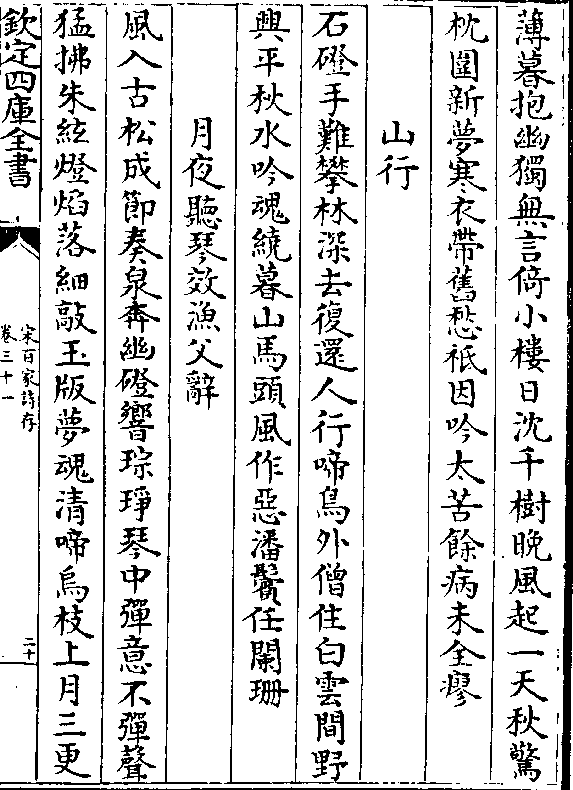 薄暮抱幽獨無言倚小樓日沈千樹晚風起一天秋驚
枕圍新夢寒衣帶舊愁祗因吟太苦餘病未全瘳
山行
石磴手難攀林深去復還人行啼鳥外僧住白雲間野
興平秋水吟魂繞暮山馬頭風作惡潘鬢任闌珊
月夜聽琴效漁父辭
風入古松成節奏泉奔幽磴響琮琤琴中彈意不彈聲
猛拂朱絃燈焰落細敲玉版夢魂清啼烏枝上月三更
欽定四庫全書
宋百家詩存
卷三十一
二十